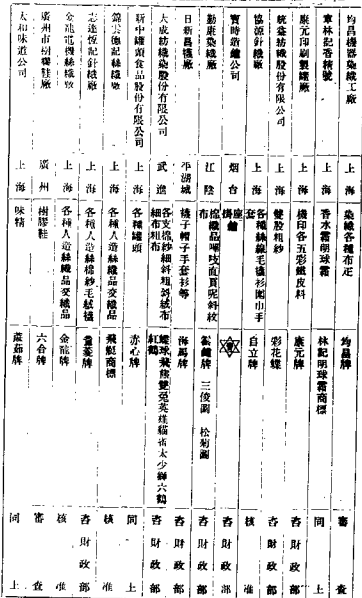 均昌機器染織工廠 上海 染織各種布疋 均昌牌 審查
章林記香精號 上海 香水霜明球霜 林記明球霜商標 同上
康元印刷製罐廠 上海 機印各五彩鐵皮料 康元牌 咨財政部
統益紡織股份有限公司 上海 雙股粗紗 彩花蝶 咨財政部
協源針織廠 上海 各種絲線毛襪衫圍巾手套 自立牌 核准
寶時造鐘公司 烟台 座掛鐘 咨財政部
勤康染織廠 江陰 棉織品嗶吱直貢呢斜紋布 鐘牌 三俊圖 松菊圖 咨財政部
日新昌襪廠 平湖城 襪子帽子手套衫等 海馬牌 咨財政部
大成紡織染股份有限公司 武進 各支棉紗細斜粗斜絨布細布粗布 蝶球飛熊雙兔英雄貓雀太少獅六鶴紅鶴 咨財政部
新中罐頭食品股份有限公司 上海 各種罐頭 赤心牌 同上
錦雲德記絲織廠 上海 各種人造絲織品交織品 飛艇商標 核准
志達恆記針織廠 上海 各種人造絲棉紗毛絨襪 菱牌 咨財政部
金龍電機絲織廠 上海 各種人造絲織品交織品 金龍牌 核准
廣州市樹膠鞋廠 廣州 樹膠鞋 六合牌 審查
太和味道公司 上海 味精 蘆茹牌 同上